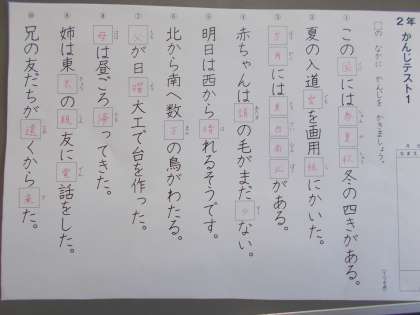 2年 かんじテスト1
□の なかに かんじを かきましょう。
① この国には春夏秋冬の四きがある。
② 夏の入道雲を画用紙にかいた。
③ 方角には東西南北がある。
④ 赤ちゃんは頭の毛がまだ少ない。
⑤ 明日は西から晴れるそうです。
⑥ 北から南へ数万の鳥がわたる。
⑦ 父が日曜大工で台を作った。
⑧ 母は昼ごろ帰ってきた。
⑨ 姉は東京の親友に電話をした。
⑩ 兄の友だちが遠くから来た。